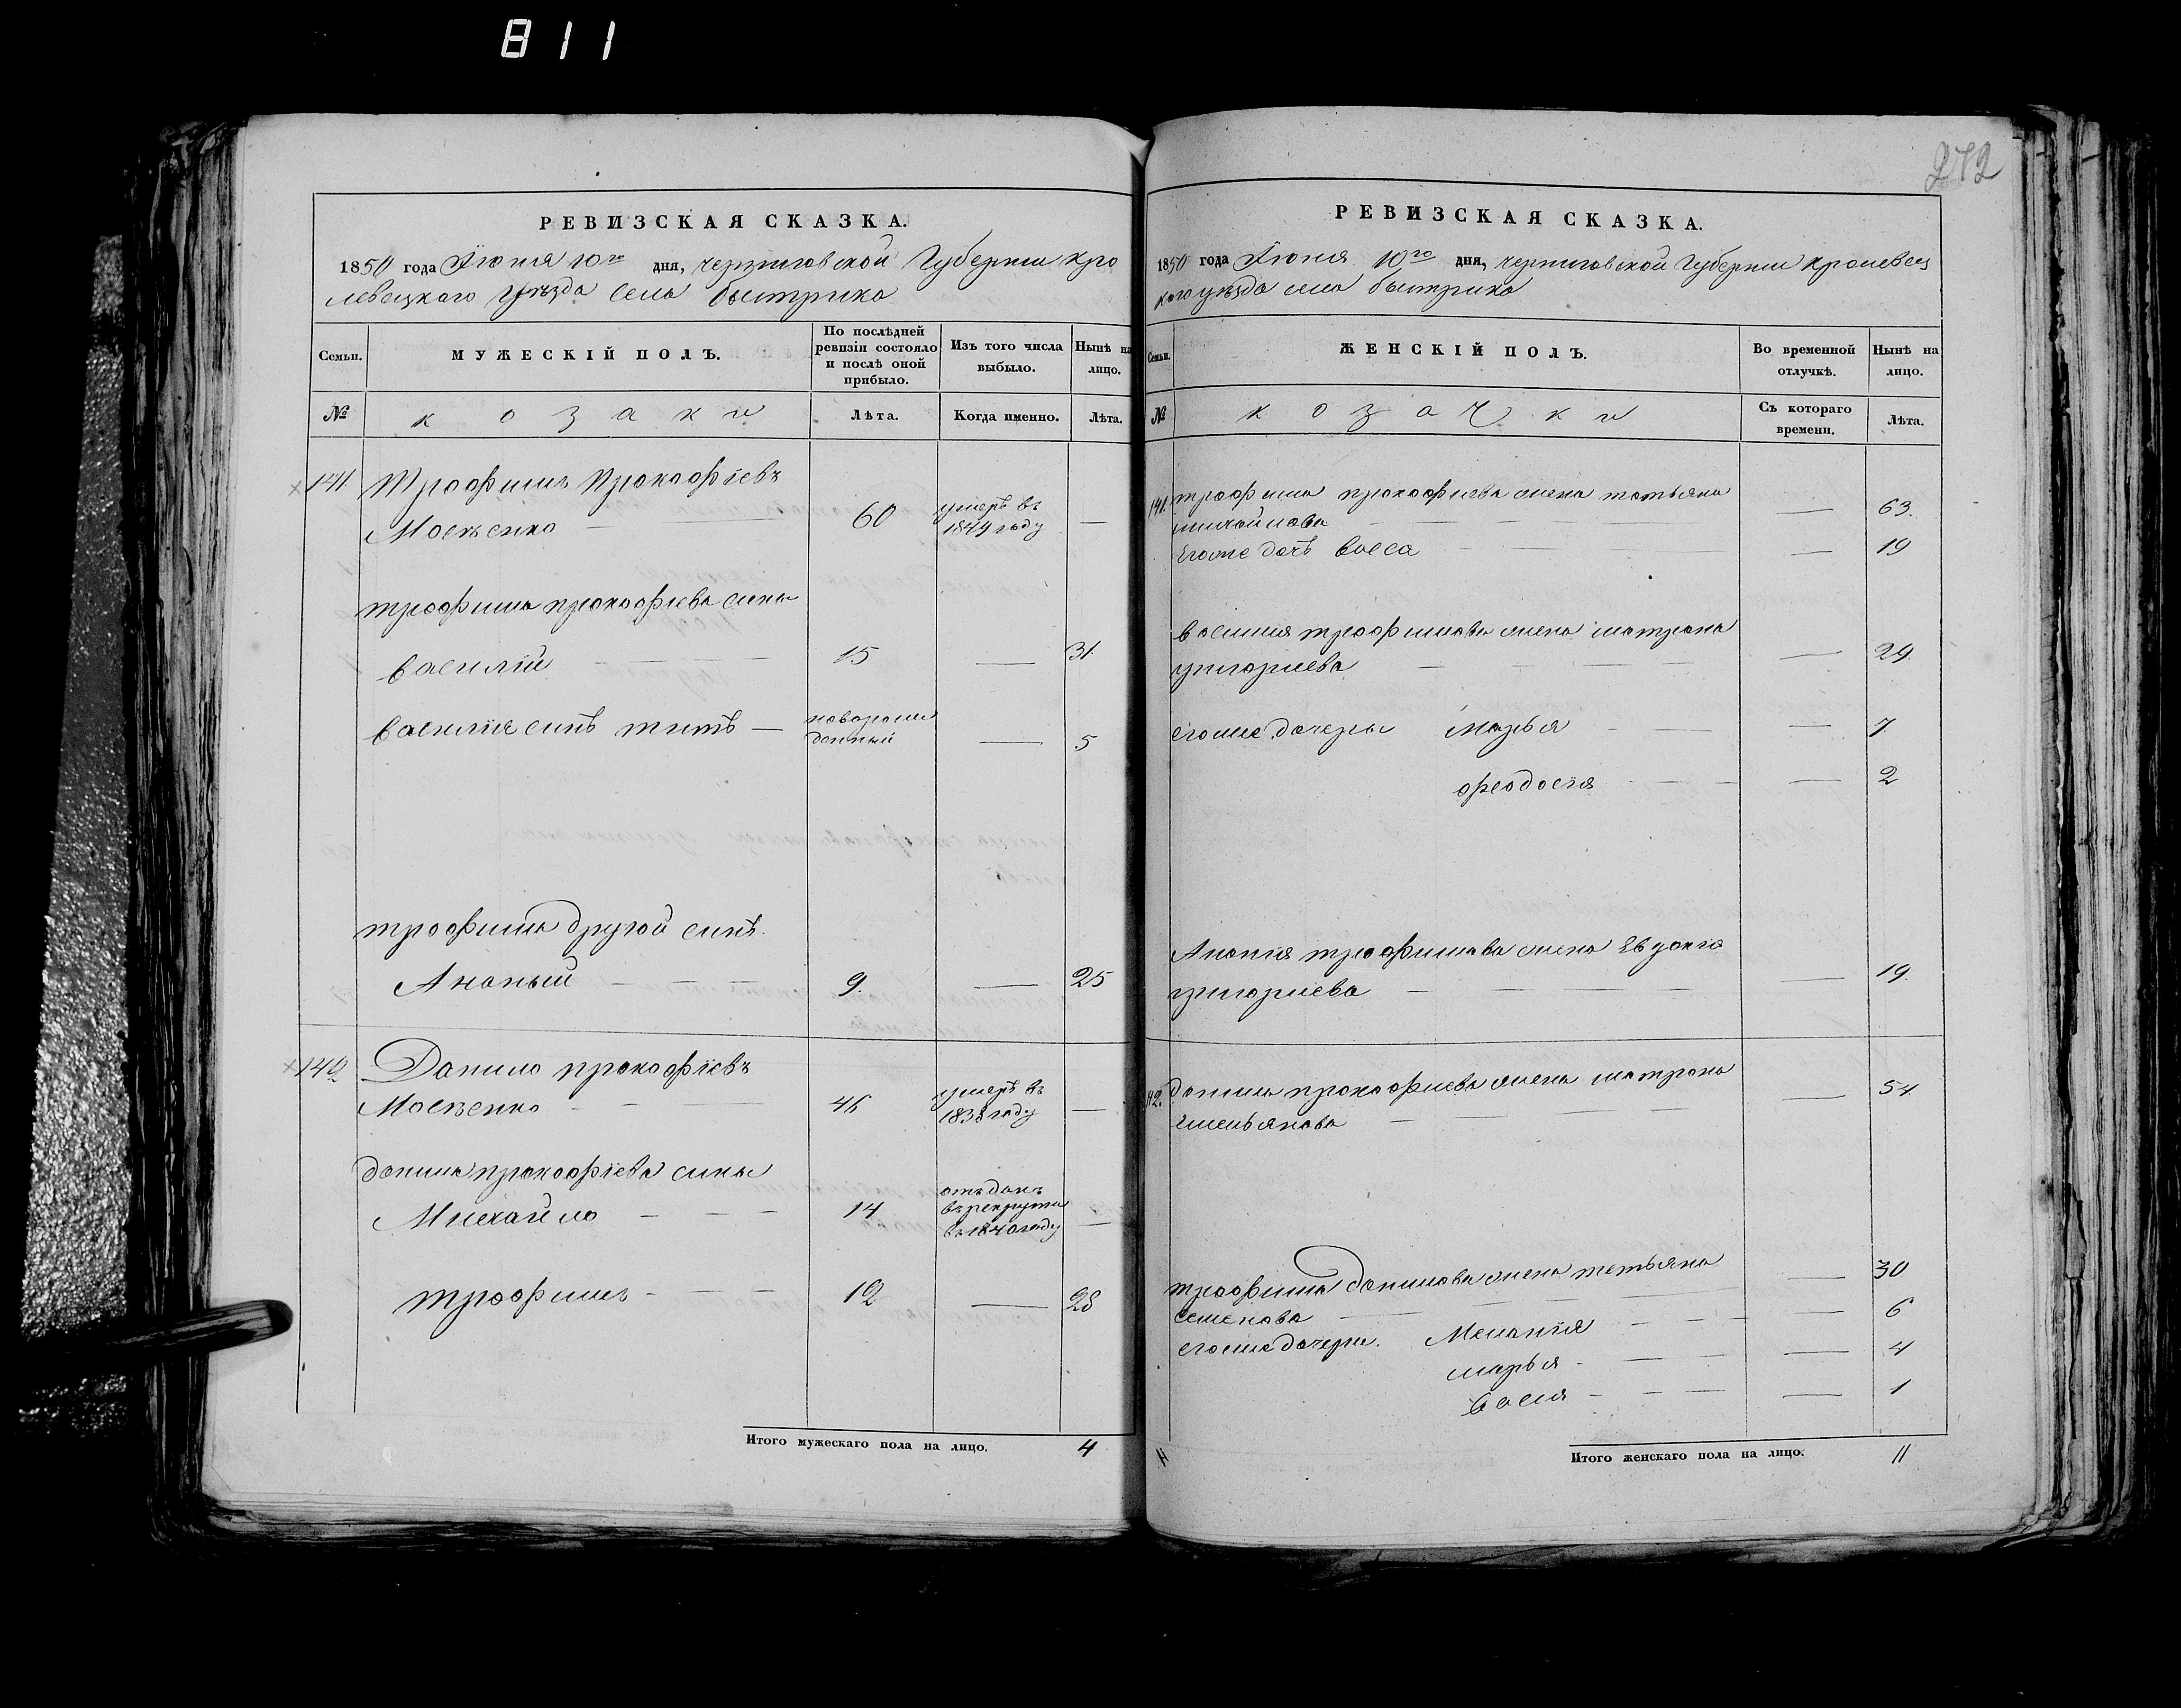 811
272
РЕВИЗСКАЯ СКАЗКА.
1850 года Июня 10го дня, черниговской Губернии кро
левецкаго уѣзда села быстрика
Семьи.
МУЖЕСКІЙ ПОЛЪ.
По послѣдней ревизіи состояло и послѣ оной прибыло.
Изъ того числа выбыло.
Нынѣ на лицо.
№
козаки
Лѣта.
Когда именно.
Лѣта.
141. Трофимъ Прокофіевъ
Мосѣенко — 60 умеръ въ 1844 году —
трофима прокофіева сины
василій — — — 15 — 31.
василія синъ титъ — новорож
денный — 5
трофима другой синъ.
Ананый — — — 9. — 25
142 Данило прокофіевъ
Мосѣенко — — 46 умеръ въ 1838 году —
данила прокофіева сины
Михайло — — — 14 отъданъ
въ рекруты
въ 1840 году —
трофимъ — — — 12 — 28
Итого мужескаго пола на лицо. 4
РЕВИЗСКАЯ СКАЗКА.
1850 года Июня 10го дня, черниговской Губернии кролевец
каго уѣзда села быстрика
Семьи.
ЖЕНСКІЙ ПОЛЪ.
Во временной отлучкѣ.
Нынѣ на лицо.
№
козачки
Съ котораго времени.
Лѣта.
141. трофима прокофиева жена татьяна
михайлова — — — 63.
Егоже дочъ васса — — — 19
василия трофимова жена матрона
григориева — — — 29.
егоже дочеры марья — — 7
феодосія — — 2
Ананія трофимова жена Евдокія
григориева — — — 19.
142. данила прокофиева жена матрона
емельянова — — — 54.
трофима данилова жена татьяна
семенова — — 30
егоже дочери. Меланія — — 6
марья — — — 4
васса — — — 1
Итого женскаго пола на лицо. 11